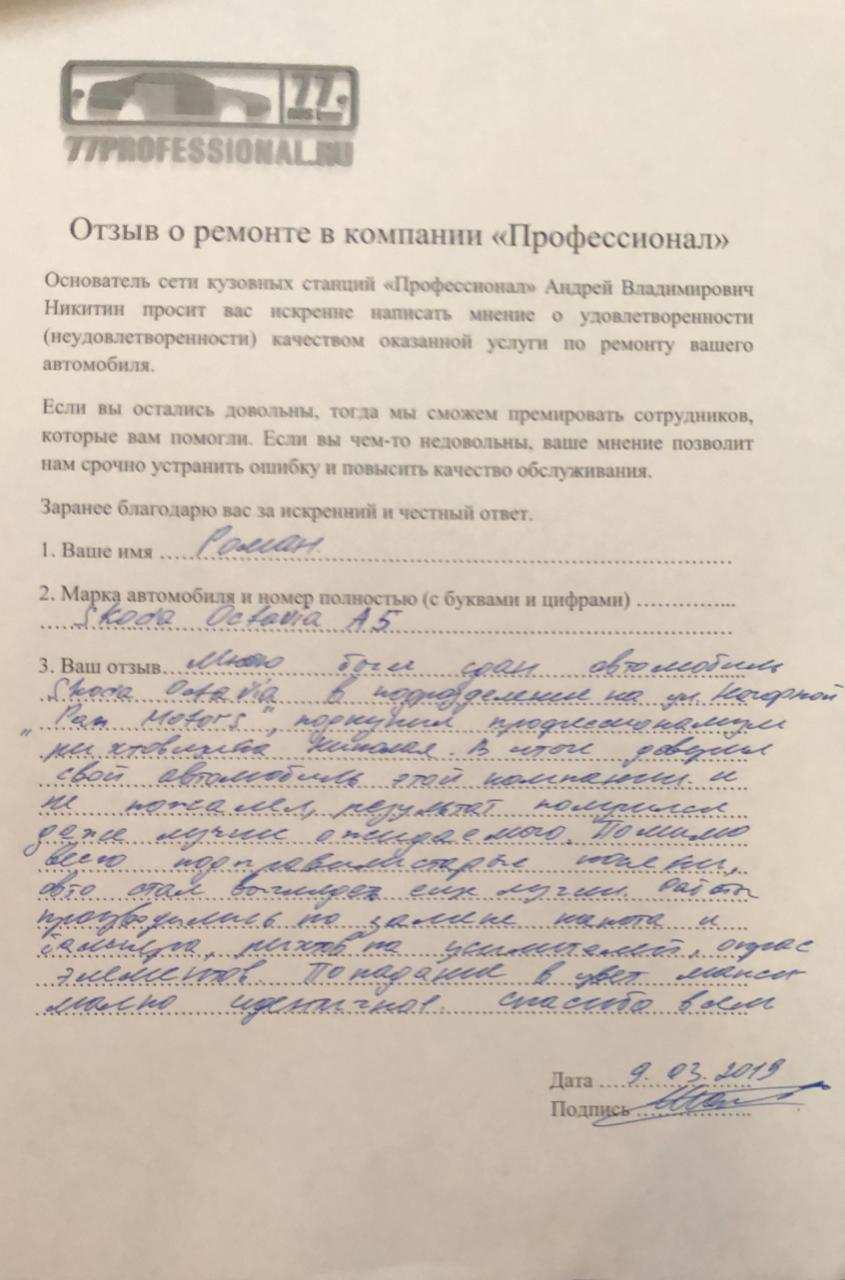 77
77PROFESSIONAL.RU
Отзыв о ремонте в компании «Профессионал»
Основатель сети кузовных станций «Профессионал» Андрей Владимирович
Никитин просит вас искренне написать мнение о удовлетворенности
(неудовлетворенности) качеством оказанной услуги по ремонту вашего
автомобиля.
Если вы остались довольны, тогда мы сможем премировать сотрудников,
которые вам помогли. Если вы чем-то недовольны, ваше мнение позволит
нам срочно устранить ошибку и повысить качество обслуживания.
Заранее благодарю вас за искренний и честный ответ.
1. Ваше имя ..... Роман
2. Марка автомобиля и номер полностью (с буквами и цифрами) ..............
Skoda Octavia A5
3. Ваш отзыв... Мною был сдан автомобиль
Skoda Octavia в подразделение на ул. Нагорной
"Pan Motors", подкупил профессионализм
рихтовщика Николая. В итоге доверил
свой автомобиль этой компании и
не пожалел, результат получился
даже лучше ожидаемого. Помимо
всего подправили старые косяки,
авто стал выглядеть еще лучше. Работы
производились по замене капота и
бампера, рихтовка усилителей, окрас
элементов. Попадание в цвет макси
мально идентичное. Спасибо всем
Дата 9.03.2019
Подпись